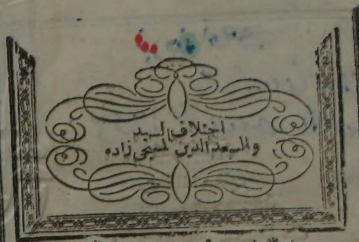 اختلاف السيد
والسعد الدين لمسيحى زاده